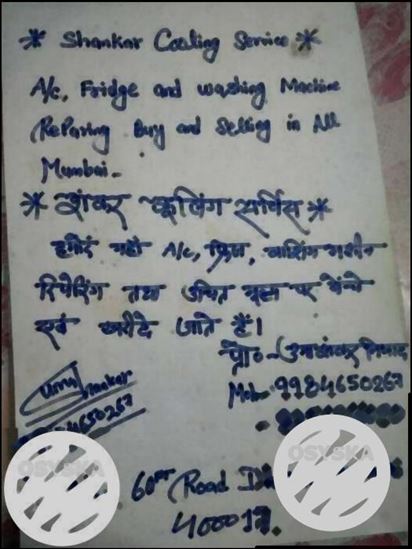 * Shankar Cooling Service *
A/c, Fridge and washing Machine
Reparing Buy and Selling in All
Mumbai.
* शंकर कूलिंग सर्विस *
हमारे यहाँ A/c, फ्रिज, वाशिंग मशीन
रिपेरिंग तथा उचित मूल्य पर बेचे
एवं खरीदे जाते हैं।
प्रो०-उमाशंकर निषाद
Mob. 9984650267
Uma Shankar
4650267
60FT Road
400017.
OSYSKA
OSYSKA